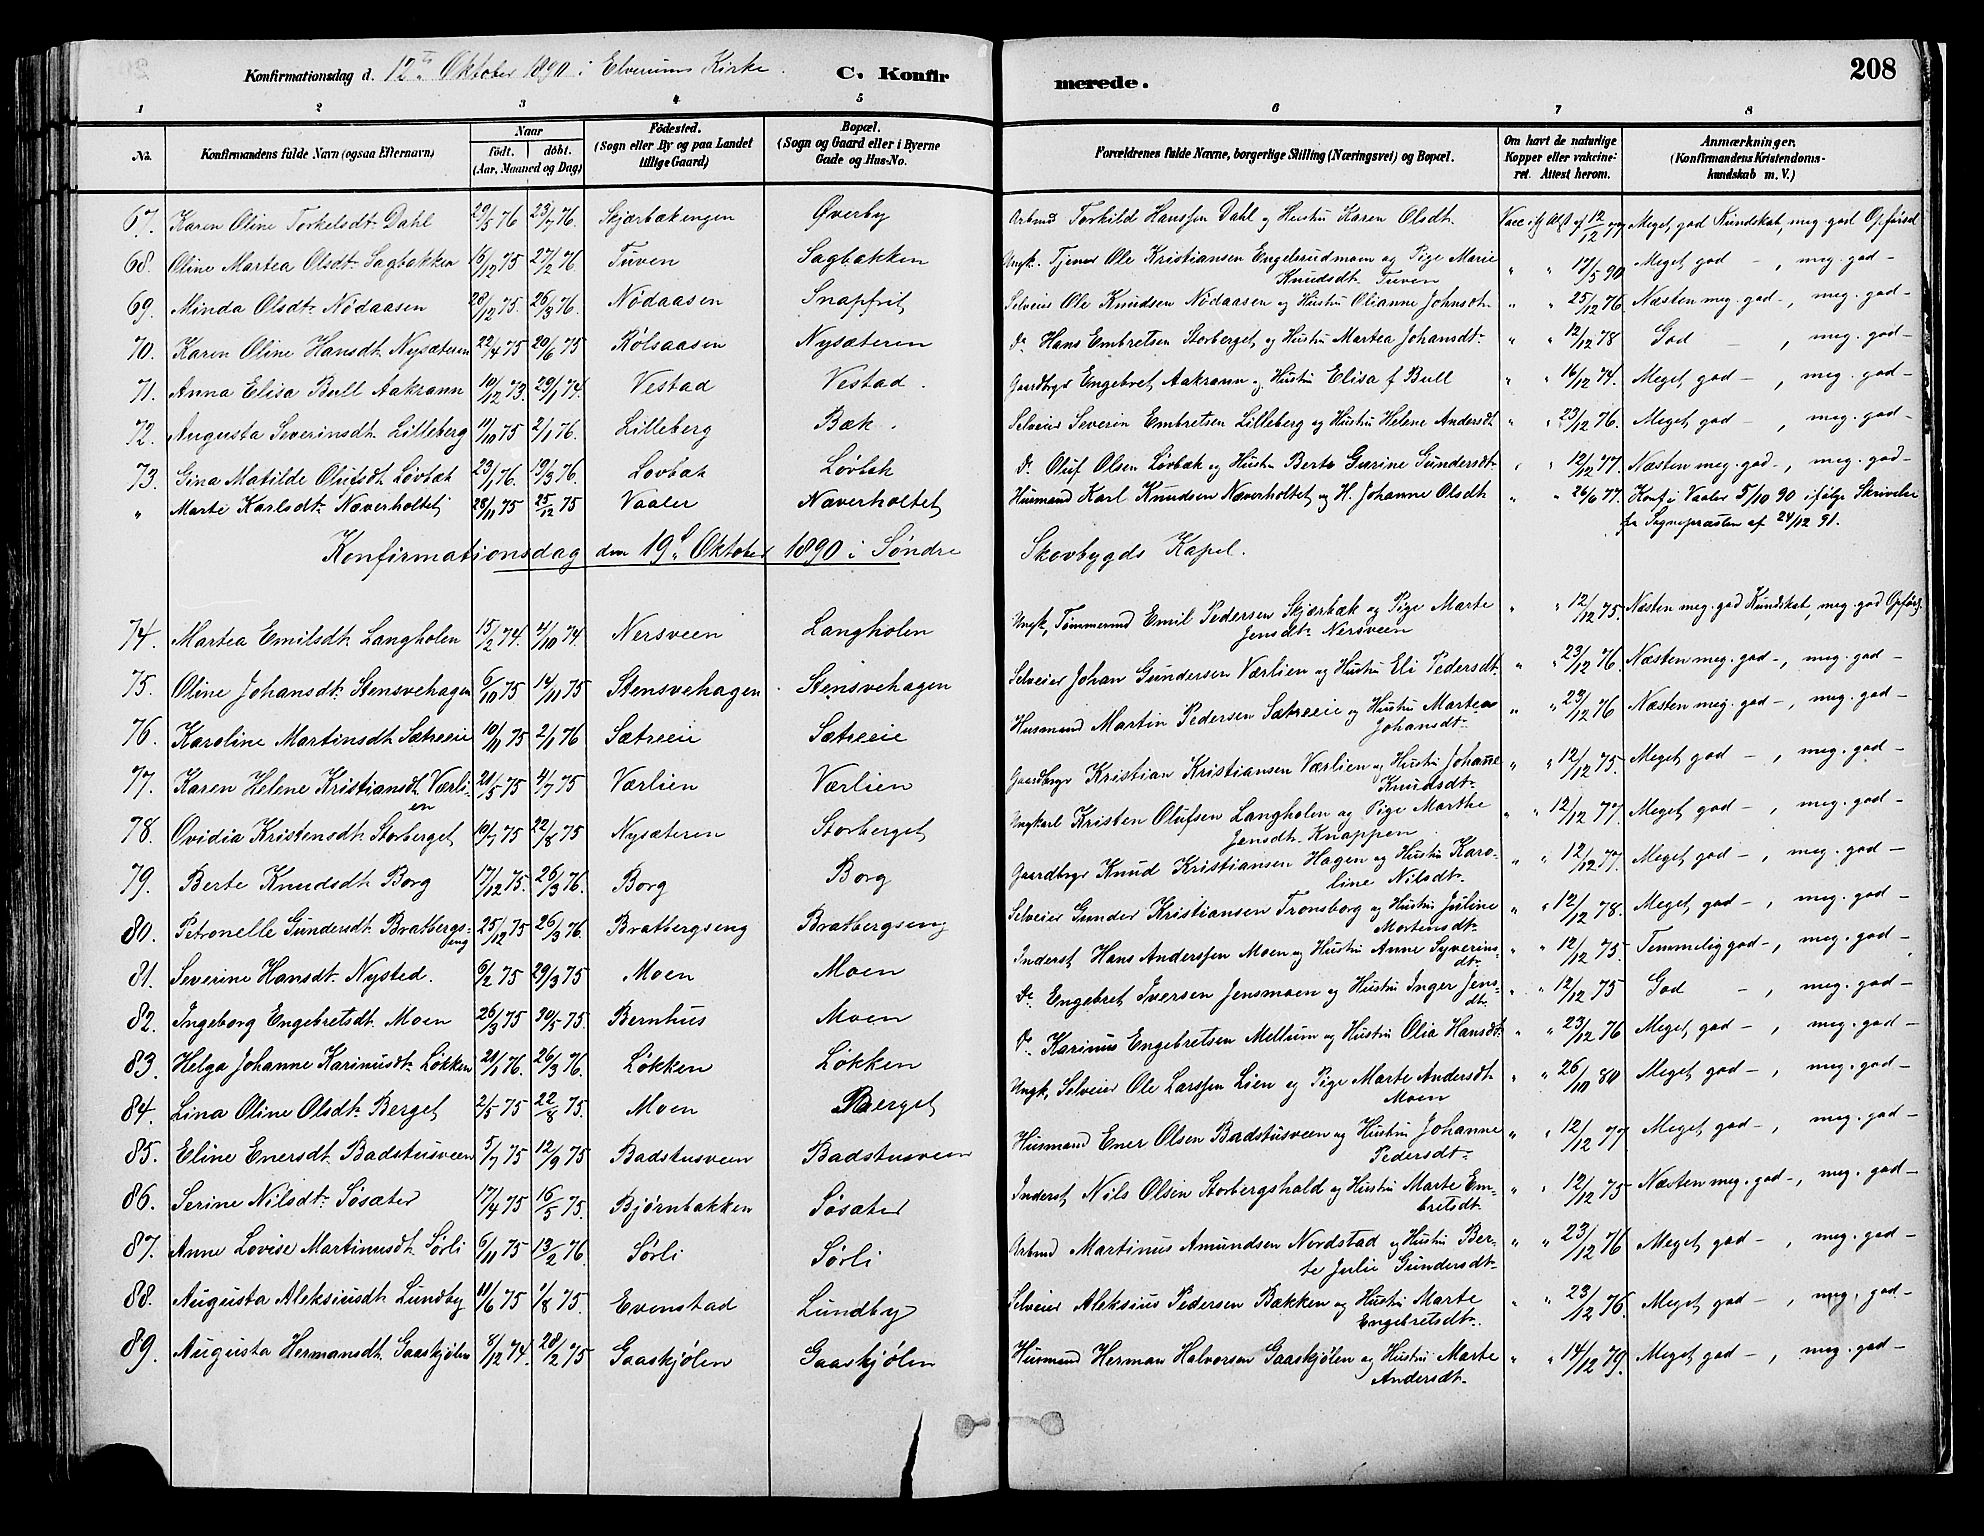 Konfirmationsdag d. 12te Oktober 1890 i Elverums Kirke. C. Konfir merede. 208
1 2 3 4 5 6 7 8
No. Konfirmandens fulde Navn (ogsaa Efternavn) Naar födt. döbt. (Aar, Maaned og Dag) Födested. (Sogn eller By og paa Landet tillige Gaard) Bopæl. (Sogn og Gaard eller i Byerne Gade og Hus-No. Forældrenes fulde Navne, borgerlige Stilling (Næringsvei) og Bopæl. Om havt de naturlige Kopper eller vakcineret. Attest herom. Anmærkninger. (Konfirmandens Kristendomskundskab m. V.)
67. Karen Oline Torkelsdt. Dahl 29/5 76 23/7 76. Skjærbækengen Øverby Arbmd Torkild Hanssen Dahl og Hustru Karen Olsdt. Vacc. ifg Atst af 12/12 77 Meget god Kundskab, meg. god Opførsel
68. Oline Martea Olsdt. Sagbakken 16/12 75 27/2 76. Tuven Sagbakken Ungk. Tjener Ole Kristiansen Engelsrudmoen og Pige Marie " " 17/5 90 Meget god – , meg. god –
Knudsdt. Tuven
69. Minda Olsdt. Nödaasen 28/12 75. 26/3 76. Nödaasen Snapfrit Selveier Ole Knudsen Nödaasen og Hustru Olianne Johnsdt. " " 25/12 76 Næsten meg. god –, meg. god –
70. Karen Oline Hansdt. Nysæteren 22/4 75 20/6 75 Kölsaasen Nysæteren Do Hans Embretsen Storberget og Hustru Martea Johansdt. " " 12/12 78 God – , meg. god –
71. Anna Elisa Bull Aakrann 10/12 73. 29/1 74. Vestad Vestad. Gaardbrgr Engebret Aakrann og Hustru Elisa f. Bull " " 16/12 74. Meget god – , meg. god –
72. Augusta Severinsdt. Lilleberg 11/10 75 2/1 76. Lilleberg Bæk. Selveier Severin Embretsen Lilleberg og Hustru Helene Andersdt " " 23/12 76. Meget god – , meg. god –
73. Gina Matilde Olufsdt. Lövbæk 23/1 76. 19/3 76. Lovbæk Lövbæk Do Oluf Olsen Lövbæk og Hustru Berte Gurine Gundersdt. " " 12/12 77. Næsten meg. god –, meg. god –
" Marte Karlsdt. Næverholtet 28/11 75 25/12 75 Vaaler Næverholtet Husmand Karl Knudsen Næverholtet og H. Johanne Olsdt. " " 26/6 77. Konf. i Vaaler 5/10 90 ifølge Skrivelse
fra Sognepræsten af 24/12 91.
Konfirmationsdag den 19de Oktober 1890 i Søndre Skovbygds Kapel.
74. Martea Emilsdt. Langholen 15/2 74. 4/10 74. Nersveen Langholen Ungk. Tømmermd Emil Pedersen Skjærbæk og Pige Marte " " 12/12 75. Næsten meg. god Kundskab, meg. god Opførs.
Jensdt. Nersveen
75. Oline Johansdt. Stensvehagen 6/10 75 14/11 75 Stensvehagen Stensvehagen Selveier Johan Gundersen Værlien og Hustru Eli Pedersdt. " " 23/12 76. Næsten meg. god –, meg. god –
76. Karoline Martinsdt. Sætreeie 10/11 75 2/1 76 Sætreeie Sætreeie Husmand Martin Pedersen Sætreeie og Hustru Martea " " 23/12 76 Næsten meg. god –, meg. god –
Johansdt.
77. Karen Helene Kristiansdt. Værlien 21/5 75 4/7 75 Værlien Værlien Gaardbrgr Kristian Kristiansen Værlien og Hustru Johanne " " 12/12 75. Meget god – , meg. god –
Knudsdt.
78. Ovidia Kristensdt. Storberget 10/7 75 22/8 75 Nysæteren Storberget Ungkarl Kristen Olufsen Langholen og Pige Marthe " " 12/12 77. Meget god – , meg. god –
Jensdt. Knappen
79. Berte Knudsdt. Borg 17/12 75. 26/3 76. Borg Borg Gaardbrgr Knud Kristiansen Hagen og Hustru Karo- " " 12/12 77. Meget god – , meg. god –
line Nilsdt.
80. Petronelle Gundersdt. Bratbergseng 25/12 75 26/3 76. Bratbergseng Bratbergseng Selveier Gunder Kristiansen Tronsborg og Hustru Juline " " 12/12 78. Meget god – , meg. god –
Mortensdt.
81. Severine Hansdt. Nysted. 6/2 75 29/3 75 Moen Moen Inderst Hans Anderssen Moen og Hustru Anne Syverins- " " 12/12 75. Temmelig god –, meg. god –
dt.
82. Ingeborg Engebretsdt. Moen 26/3 75 30/5 75. Bernhus Moen Do Engebret Iversen Jensmoen og Hustru Inger Jens- " " 12/12 75 God – , meg. god –
dt.
83. Helga Johanne Karinusdt. Løkken 21/1 76. 26/3 76. Løkken Løkken Do Karinus Engebretsen Mellum og Hustru Olia Hansdt. " " 23/12 76 Meget god – , meg. god –
84. Lina Oline Olsdt. Berget 2/5 75 22/8 75. Moen Berget Ungk. Selveier Ole Larssen Lien og Pige Marte Andersdt. " " 26/10 80 Meget god – , meg. god –
Moen
85. Eline Enersdt. Badstusveen 5/7 75 12/9 75 Badstusveen Badstusveen Husmand Ener Olsen Badstusveen og Hustru Johanne " " 12/12 77 Meget god – , meg. god –
Pedersdt.
86. Serine Nilsdt. Søsæter 17/4 75 16/5 75. Bjørnbakken Søsæter Inderst Nils Olsen Storbergshald og Hustru Marte Em- " " 12/12 75 Næsten meg. god –, meg. god –
bretsdt.
87. Anne Lovise Martinusdt. Sørli 6/11 75 13/2 76. Sørli Sørli Arbmd Martinus Amundsen Nordstad og Hustru Ber- " " 23/12 76 Meget god – , meg. god –
te Julie Gundersdt.
88. Augusta Aleksiusdt. Lundby 11/6 75 1/8 75. Evenstad Lundby Selveier Aleksius Pedersen Bakken og Hustru Marte " " 23/12 76. Meget god – , meg. god –
Engebretsdt.
89. Augusta Hermansdt. Gaaskjølen 8/12 74. 28/2 75 Gaaskjølen Gaaskjølen Husmand Herman Halvorsen Gaaskjølen og Hustru Marte " " 14/12 79. Meget god – , meg. god –
Andersdt.